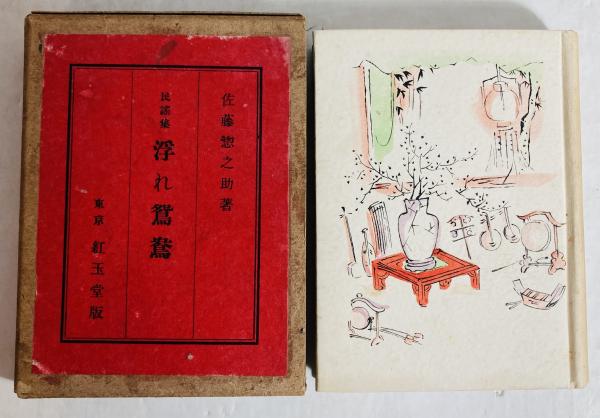 佐藤惣之助著
民謡集 浮れ鴛鴦
東京 紅玉堂版